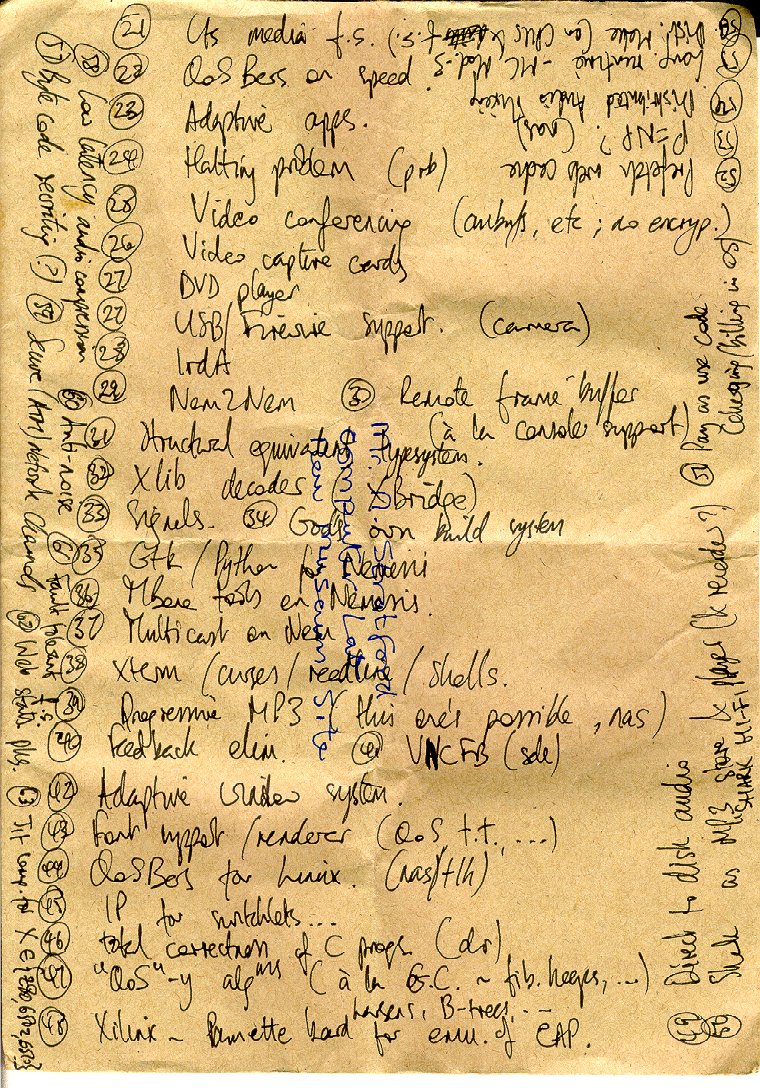 21 Us media f.s.
22 QoSBers on speed.
23 Adaptive apps.
24 Halting problem (prb)
25 Video conferencing (aubufs, etc; no encryp.)
26 Video capture cards
27 DVD player
27 USB/Firewire support. (camera)
28 IrdA
29 Nem2Nem
30 Remote frame buffer
(à la console support)
31 Structural equivalent typesystem.
32 Xlib decodes (Xbridge)
33 Signals. 34 Gods own build system
35 Gtk / Python for Nemesis
36 Mbone tools on Nemesis.
37 Multicast on Nem
38 Xterm / curses / readline / shells.
39 Progressive MP3 (this one's possible, nas)
40 Feedback elim. 41 VNCFB (sde)
42 Adaptive window system.
43 Font support / renderer (QoS, t.t., ...)
44 QoSBers for Linux. (nas/tlh)
45 IP for switchlets...
46 total correctness of C progs. (dr)
47 "QoS"-y algms (à la G.C. ~ fib. heaps, ...)
karsens, B-trees, ...
48 Xilinx ~ Pamette board for emu. of CAP.
49 Direct to disk audio
50 Shark as MP3 store & player (& renderer?)
SHARK HI-FI
51 Pay as use code
(charging/billing in OS)
52 Prefetch web cache
53 P=NP? (nas)
54 Distributed Audio Mixing
55 Comp. runtime - MC, Mod-3
56 Dist. Make (on CPUs & f.s.)
57 Byte code rewriting (?)
58 Low latency audio compression
59 Secure ATM/Network Channels
60 Anti-noise
61 Fault tolerant f.s.
62 Web stats pkg.
63 JIT comp. for X
Mr. N. Stratford
Computer Lab
New Museums Site